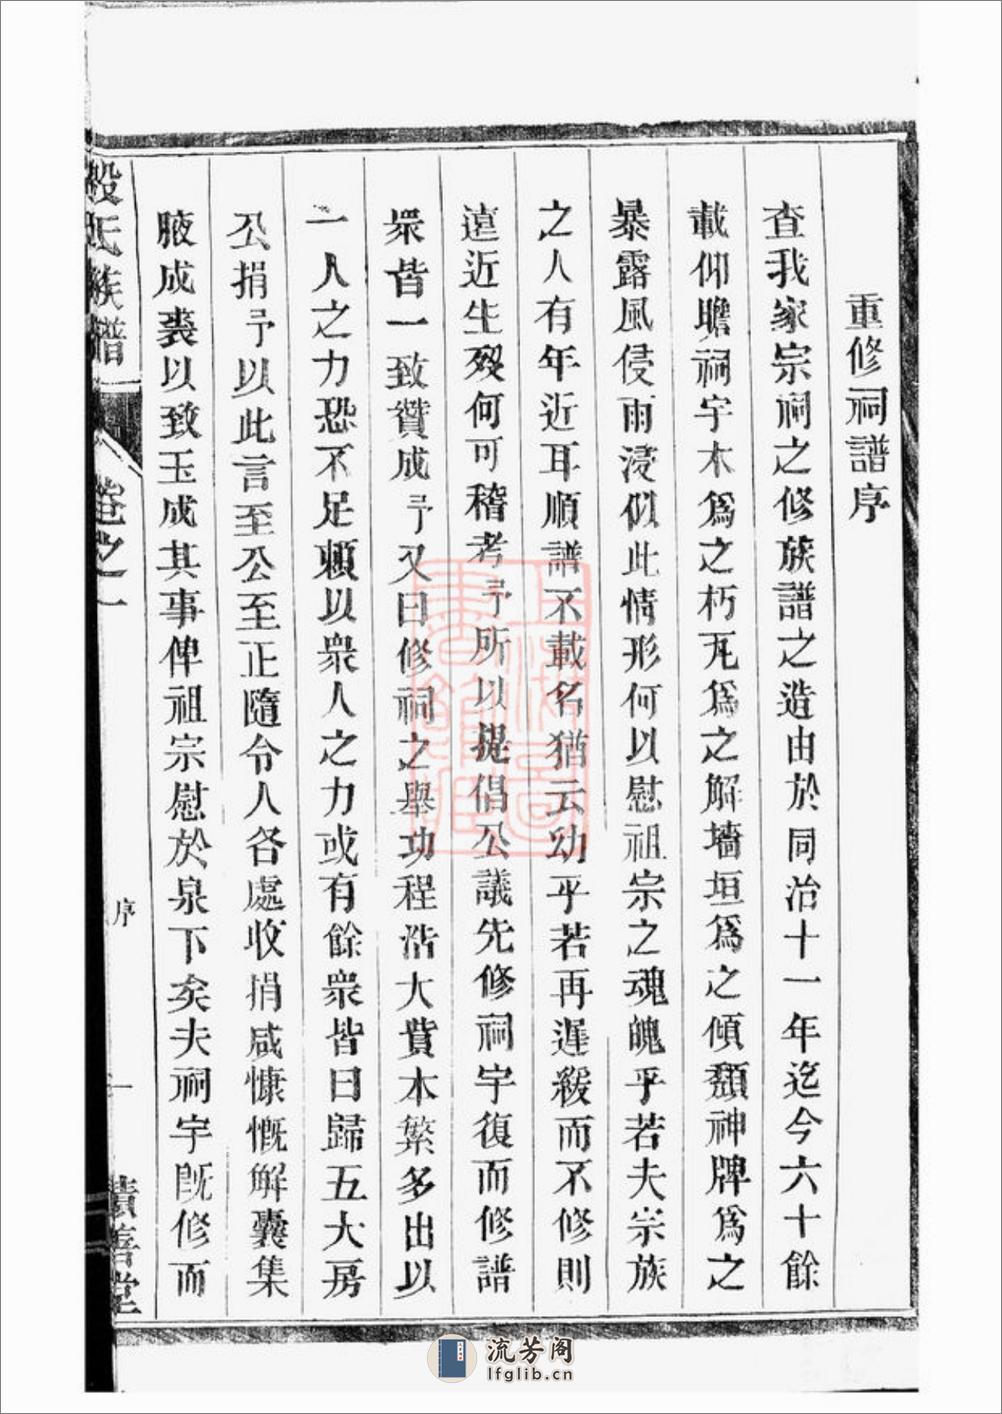 重修祠譜序
查我家宗祠之修族譜之造由於同治十一年迄今六十餘
載仰瞻祠宇木爲之朽瓦爲之解墻垣爲之傾頽神牌爲之
暴露風侵雨浸似此情形何以慰祖宗之魂魄乎若夫宗族
之人有年近耳順譜不載名猶云幼乎若再遲緩而不修則
遠近生歿何可稽考予所以提倡公議先修祠宇復而修譜
眾皆一致贊成予又曰修祠之舉功程浩大費本繁多出以
一人之力恐不足賴以衆人之力或有餘衆皆曰歸五大房
公捐予以此言至公至正隨令人各處收捐咸慷慨解囊集
腋成裘以致玉成其事俾祖宗慰於泉下矣夫祠宇旣修而
氏族譜
卷之一
序
一
積善堂
流芳阁
lfglib.cn